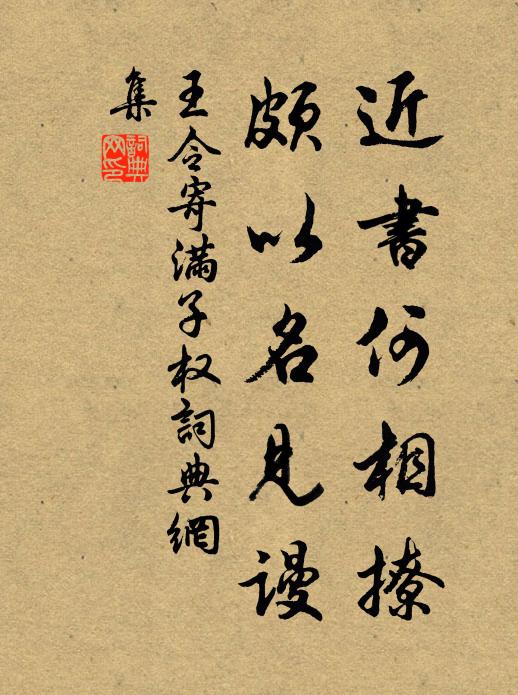 近書何相撩
頗以名見謾
王令寄滿子权詞典網
集
詞典网印